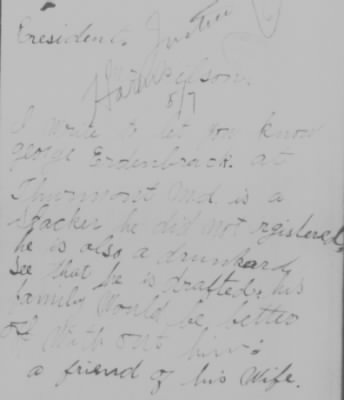 President. Justice
Mr Wilson.
8/7
I write to let you know
george Erdenbrack. at
Thurmont Md. is a
slacker he did not rgistered,
he is also a drunkard,
See that he is drafted, his
family Would be better
off With out him.
a friend of his Wife.